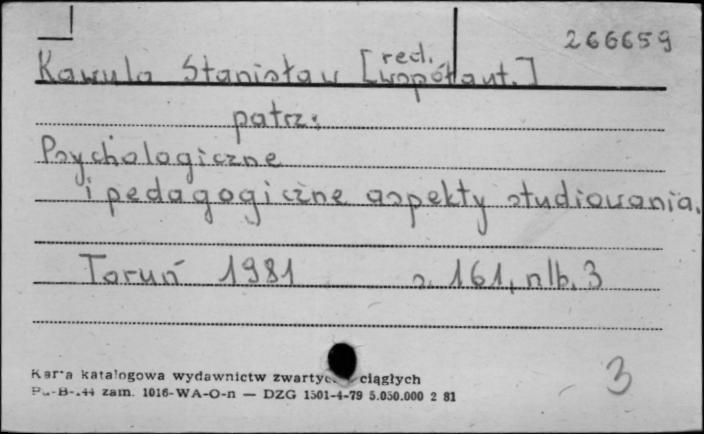 266659
Kawula Stanisław [red. współaut.]
patrz:
Psychologiczne
i pedagogiczne aspekty studiowania.
Toruń 1981 s. 161, nlb. 3
3
Karta katalogowa wydawnictw zwartych ciągłych
Pu-B-144 zam. 1016-WA-O-n — DZG 1501-4-79 5.050.000 2 81